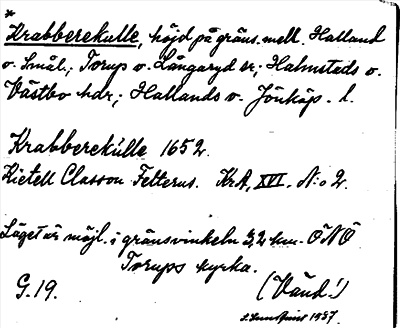 *
Krabberekulle, höjd på gräns. mell. Halland
o. Smål.; Torup o. Långaryd sr; Halmstads o.
Västbo hdr; Hallands o. Jönköp. l.
Krabberekulle 1652.
Kietell Classon Felterus. KrA, XVI. N:o 2.
Läget är möjl. i gränsvinkeln 3,2 km. ÖNÖ
Torups kyrka.
G. 19.
(Vänd!)
1937.